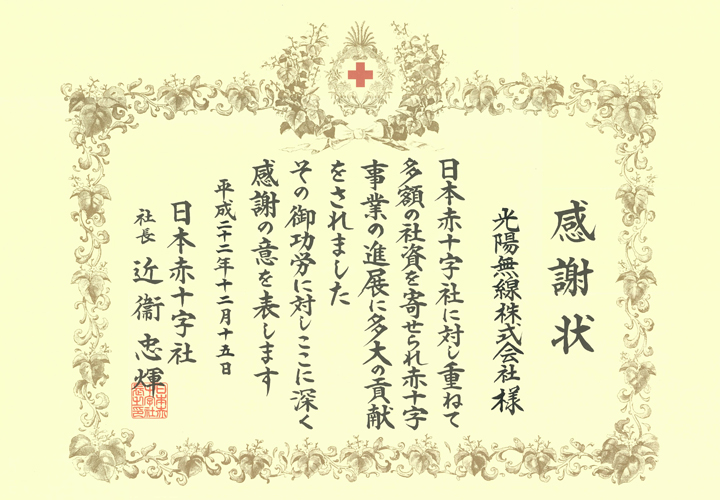 感謝状
光陽無線株式会社様
日本赤十字社に対し重ねて
多額の社資を寄せられ赤十字
事業の進展に多大の貢献
をされました
その御功労に対しここに深く
感謝の意を表します
平成二十二年十二月十五日
日本赤十字社
社長 近衞忠煇